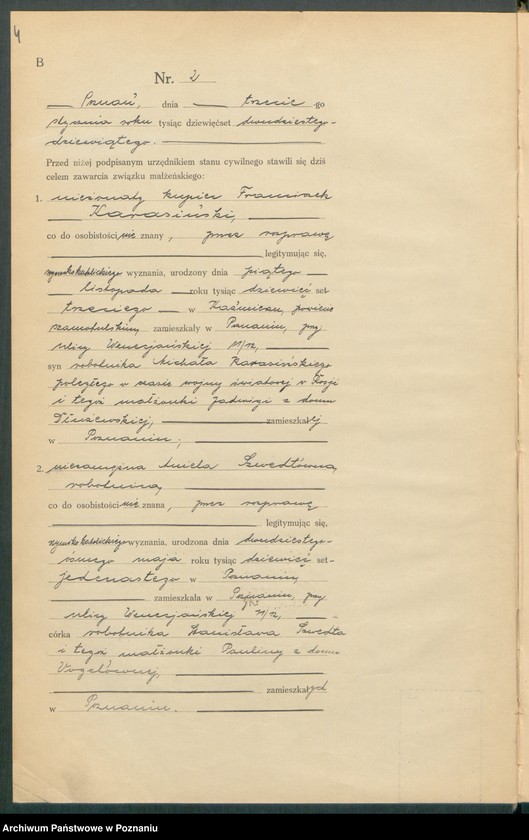 4
B
Nr. 2
Poznań, dnia trzecie -go
stycznia roku tysiąc dziewięćset dwudziestego-
dziewiątego.
Przed niżej podpisanym urzędnikiem stanu cywilnego stawili się dziś
celem zawarcia związku małżeńskiego:
1. nieżonaty kupiec Franciszek
Karasiński,
co do osobistości nie znany, przez rozprawę
legitymując się,
rzymskokatolickiego wyznania, urodzony dnia piątego
listopada roku tysiąc dziewięć set-
trzeciego w Kaźmierzu, powiecie
szamotulskim, zamieszkały w Poznaniu, przy
ulicy Wenecjańskiej 11/12,
syn robotnika Michała Karasińskiego
poległego w czasie wojny światowej w Rosji
i tegoż małżonki Jadwigi z domu
zamieszkałej
w Poznaniu;
2. niezamężna Aniela Szwedtówna,
robotnica,
co do osobistości nie znana, przez rozprawę
legitymując się,
rzymskokatolickiego wyznania, urodzona dnia dwudziestego-
ósmego maja roku tysiąc dziewięć set-
jedenastego w Poznaniu,
zamieszkała w Poznaniu, przy
ulicy Wenecjańskiej 11/12,
córka robotnika Stanisława Szwedta
i tegoż małżonki Pauliny z domu
Vogelównej,
zamieszkałych
w Poznaniu.
Archiwum Państwowe w Poznaniu